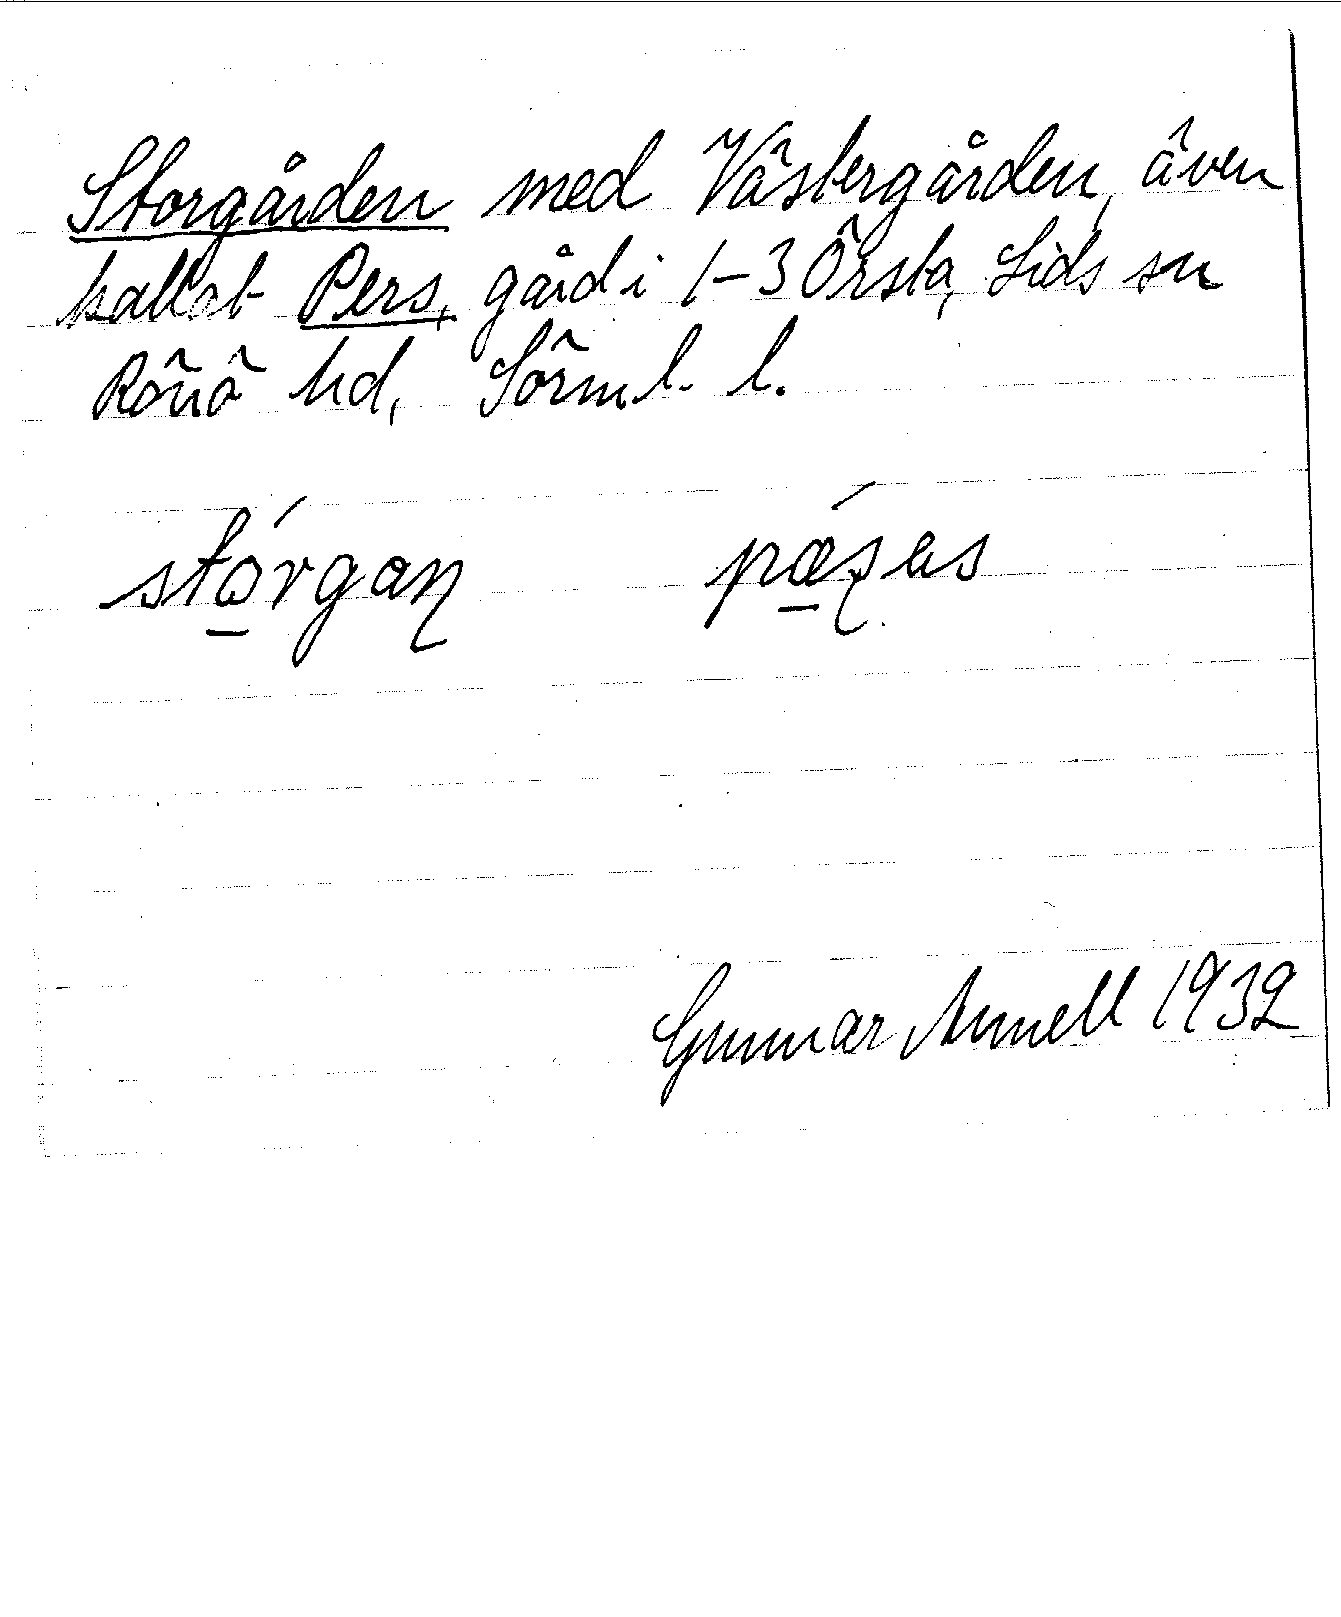 Storgården med Västergården, även
kallat Pers, gård i 1-3 Örsta, Lids sn
Rönö hd, Sörml. l.
stórgaɳ pǽʂɐs
Gunnar Annell 1932